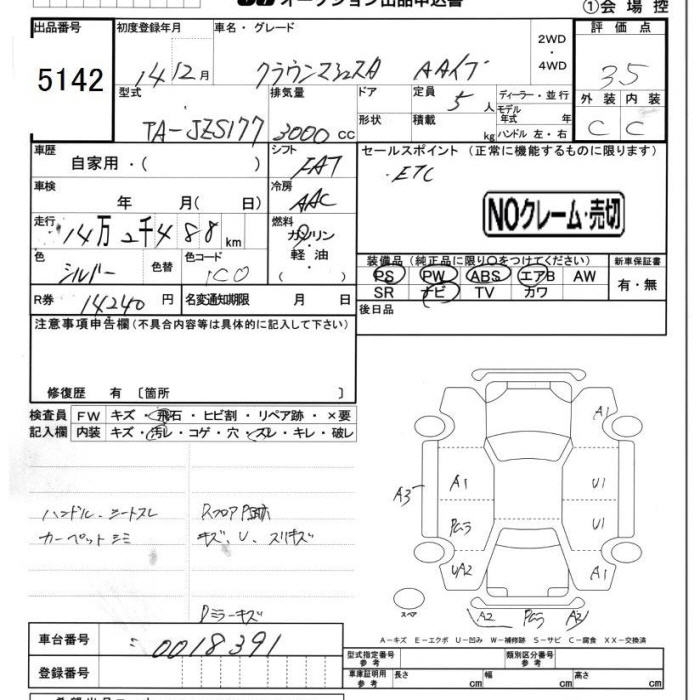 オークション出品申込書
①会場控
出品番号 5142
初度登録年月 14 12月
車名・グレード クラウンマジェスタ Aタイプ
2WD・4WD
評価点 3.5
外装 C 内装 C
型式 TA-JZS177
排気量 3000cc
ドア
形状
定員 5人
積載 kg
ディーラー・並行
モデル年式 年
ハンドル 左・右
車歴 自家用・( )
シフト FAT
セールスポイント (正常に機能するものに限ります)
・ETC
車検 年 月( 日)
冷房 AAC
NOクレーム・売切
走行 14万2千488km
燃料 ガソリン・軽油
色 シルバー 色替
色コード 1C0
装備品 (純正品に限り○をつけてください)
PS PW ABS エアB AW
SR ナビ TV カワ
新車保証書 有・無
R券 14240円
名変通知期限 月 日
後日品
注意事項申告欄(不具合内容等は具体的に記入して下さい)
修復歴 有〔箇所 〕
検査員記入欄
FW キズ・飛石・ヒビ割・リペア跡・×要
内装 キズ・汚レ・コゲ・穴・スレ・キレ・破レ
ハンドル、シートスレ
カーペットシミ
キズ、U、スリキズ
Dミラーキズ
A1
A3 A1 U1
U1
UA2 A1
スペア
A2
A－キズ E－エクボ U－凹み W－補修跡 S－サビ C－腐食 XX－交換済
車台番号 0018391
登録番号
型式指定番号 参考
類別区分番号 参考
車庫証明用 参考 長さ cm 幅 cm 高さ cm